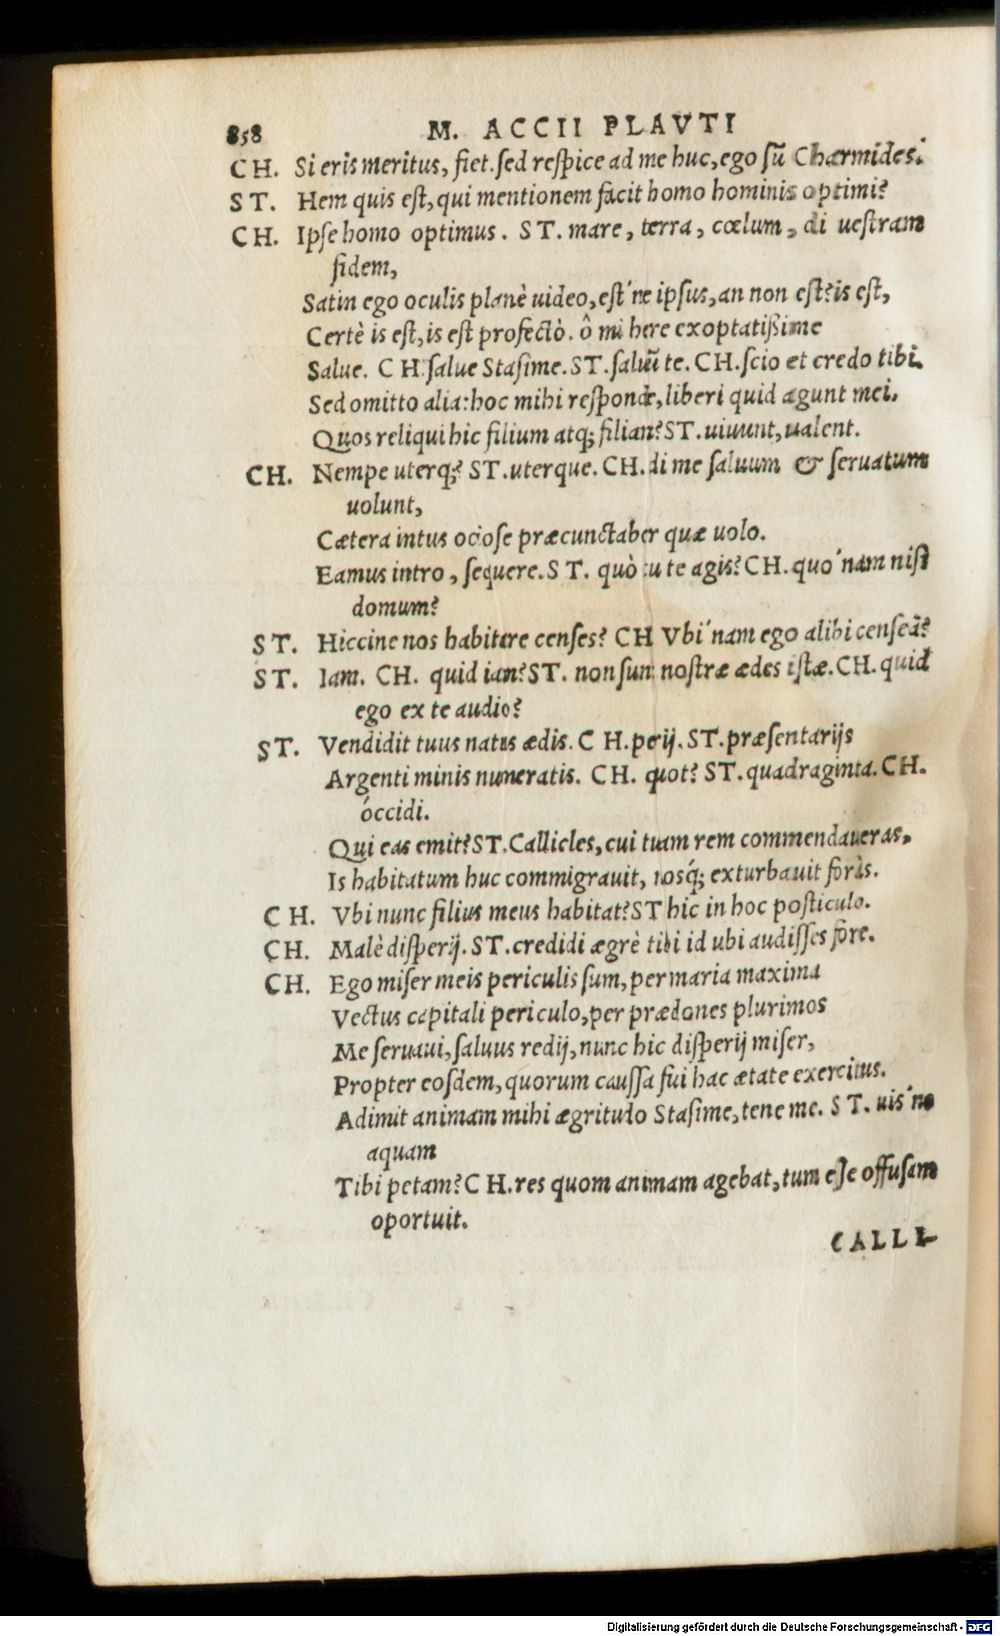 858 M. ACCII PLAVTI
CH. Si eris meritus, fiet. sed respice ad me huc, ego sũ Charmides.
ST. Hem quis est, qui mentionem facit homo hominis optimi?
CH. Ipse homo optimus. ST. mare, terra, cœlum, di uestram
fidem,
Satin ego oculis planè uideo, est'ne ipsus, an non est? is est,
Certè is est, is est profectò. ô mi here exoptatißime
Salue. CH. salue Stasime. ST. saluũ te. CH. scio et credo tibi.
Sed omitto alia: hoc mihi responde, liberi quid agunt mei.
Quos reliqui hic filium atq; filian? ST. uiuunt, ualent.
CH. Nempe uterq;? ST. uterque. CH. di me saluum & seruatum
uolunt,
Cætera intus ociose præcunctabor quæ uolo.
Eamus intro, sequere. ST. quò tu te agis? CH. quo'nam nisi
domum?
ST. Hiccine nos habitare censes? CH Vbi'nam ego alibi censeã?
ST. Iam. CH. quid ian? ST. non sunt nostræ ædes istæ. CH. quid
ego ex te audio?
ST. Vendidit tuus natus ædis. CH. perij. ST. præsentarijs
Argenti minis numeratis. CH. quot? ST. quadraginta. CH.
óccidi.
Qui eas emit? ST. Callicles, cui tuam rem commendaueras,
Is habitatum huc commigrauit, nosq́; exturbauit foràs.
CH. Vbi nunc filius meus habitat? ST hic in hoc posticulo.
CH. Malè disperij. ST. credidi ægrè tibi id ubi audisses fore.
CH. Ego miser meis periculis sum, per maria maxima
Vectus capitali periculo, per prædones plurimos
Me seruaui, saluus redij, nunc hic disperij miser,
Propter eosdem, quorum caussa fui hac ætate exercitus.
Adimit animam mihi ægritudo Stasime, tene me. ST. uis'ne
aquam
Tibi petam? CH. res quom animam agebat, tum esse offusam
oportuit.
CALLI-
Digitalisierung gefördert durch die Deutsche Forschungsgemeinschaft - DFG